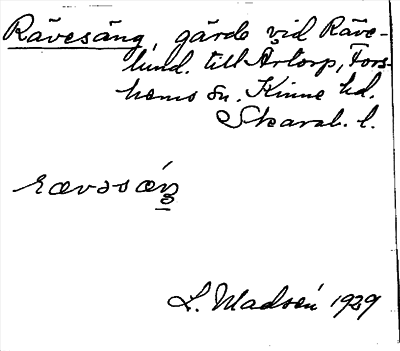 Rävesäng, gärde vid Räve-
lund. till Årtorp, Fors-
hems sn. Kinne hd.
Skarab. l.
rævəsæŋ
L. Madsén 1929